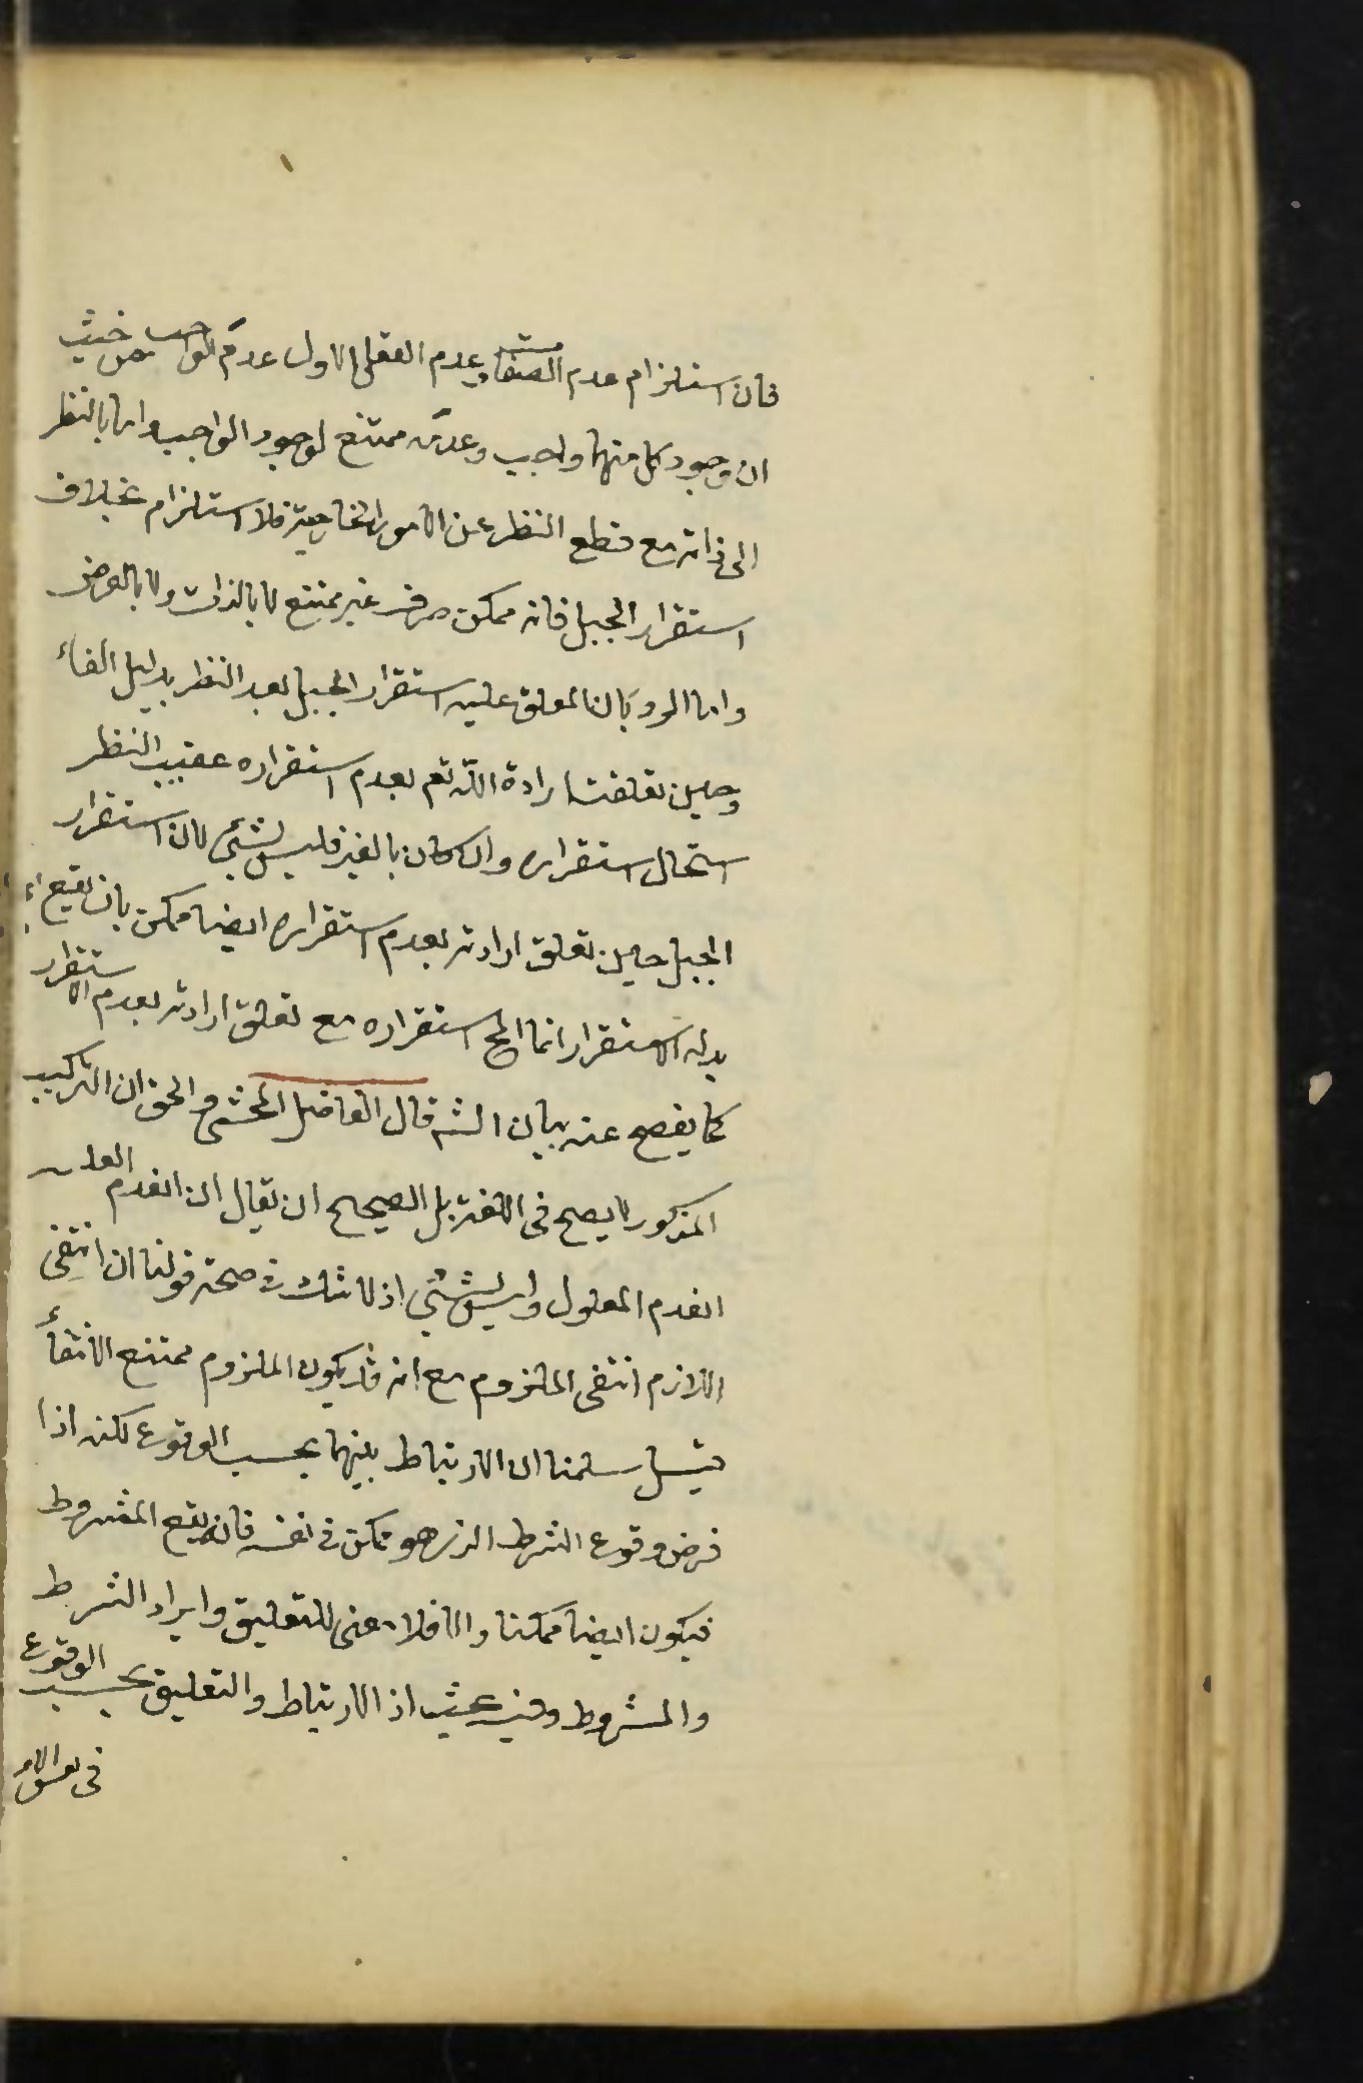 فان استلزام عدم الصفات وعدم العقل الاول عدم الواجب من حيث
ان وجود كل منهما واجب وعدمه ممتنع لوجود الواجب واما بالنظر
الى ذاته مع قطع النظر عن الامور الخارجية فلا استلزام بخلاف
استقرار الجبل فانه ممكن صرف غير ممتنع لا بالذات ولا بالعرض
واما الرد بان المعلق عليه استقرار الجبل بعد النظر بدليل الفاء
وحين تعلقت ارادة الله تع بعدم استقراره عقيب النظر
استحال استقراره وان كان بالغير فليس بشئ لان استقرار
الجبل حين تعلق ارادته بعدم استقراره ايضا ممكن بان يقع
بدله الاستقرار انما المح استقراره مع تعلق ارادته بعدم الاستقرار
كما يفصح عنه بيان الش قال الفاضل المحشى والحق ان التركيب
المذكور لا يصح فى اللغة بل الصحيح ان يقال ان انعدم العلة
انعدم المعلول وليس بشئ اذ لا شك فى صحة قولنا ان انتفى
اللازم انتفى الملزوم مع انه قد يكون الملزوم ممتنع الانتفاء
قيل سلمنا ان الارتباط بينهما بحسب الوقوع لكنه اذا
فرض وقوع الشرط الذى هو ممكن فى نفسه فانه يقع المشروط
فيكون ايضا ممكنا والا فلا معنى للتعليق وايراد الشرط
والمشروط وفيه بحث اذ الارتباط والتعليق بحسب الوقوع
فى نفس الامر